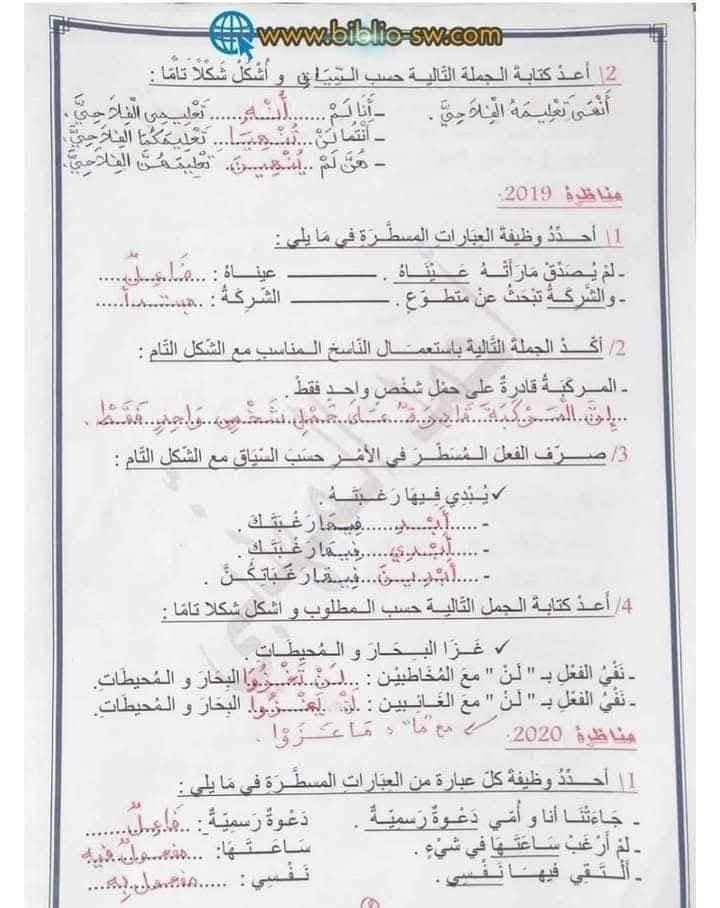 www.biblio-sw.com
2/ أعد كتابة الجملة التالية حسب السّياق و أشكل شكلاً تامّا :
أَنْهَى تَعْلِيمَهُ الْفِلَاحِيَّ . - أَنَا لَمْ ..... أُنْهِ ..... تَعْلِيمِي الْفِلَاحِيَّ .
- أَنْتُمَا لَنْ ... تُنْهِيَا ... تَعْلِيمَكُمَا الْفِلَاحِيَّ .
- هُنَّ لَمْ ... يُنْهِينَ ... تَعْلِيمَهُنَّ الْفِلَاحِيَّ .
مناظرة 2019:
1/ أحدّدُ وظيفة العبارات المسطّرة في مَا يلي :
- لمْ يُصَدّقْ مَا رَأتْهُ عَيْنَاهُ . ــــــــ عيناهُ : ... فَاعِلٌ ......
- والشّركةُ تبْحَثُ عنْ متطوّعٍ . ــــــــ الشّركةُ : ... مبتدأ ...
2/ أكّدْ الجملة التّالية باستعمال النّاسخ المناسب مع الشّكل التّام :
- المركبَةُ قادرةٌ على حمْلِ شخْصٍ واحدٍ فقطْ .
... إنَّ الْمَرْكَبَةَ قَادِرَةٌ عَلَى حَمْلِ شَخْصٍ وَاحِدٍ فَقَطْ .
3/ صرّف الفعل المُسطّر في الأمْر حسَبَ السّيَاق مع الشّكل التّام :
✓ يُبْدِي فيهَا رَغْبَتَهُ .
- ..... أَبْدِ ..... فيهَا رَغْبَتَكَ .
- ..... أَبْدِي ..... فيهَا رَغْبَتَكِ .
- ..... أَبْدِينَ ... فيهَا رَغَبَاتكُنَّ .
4/ أعد كتابة الجمل التّالية حسب المطلوب و اشكل شكلا تامّا :
✓ غَزَا البِحَارَ و المُحيطَات .
- نَفْيُ الفعْل بـ " لَنْ " معَ المُخَاطبيْن : ... لَنْ تَغْزُوا البحَارَ و المُحيطَات.
- نَفْيُ الفعْل بـ " لَنْ " معَ الغَائبين : ... لَنْ يَغْزُوا البحَارَ و المُحيطَات.
مع "مَا" : مَا غَزَوْا .
مناظرة 2020:
1/ أحدّدُ وظيفَةَ كلّ عبارة من العبارَات المسطّرَة في مَا يلي :
- جَاءَتْنَا أنا و أمّي دَعوةٌ رَسميّةٌ . دَعْوةٌ رَسميّةٌ : ... فَاعِلٌ ........
- لمْ أرْغَبْ سَاعَتَهَا في شيْءٍ . سَاعَتَهَا: ... مفعولٌ فيه
- ألْتَقي فيهَا نَفْسي . نَفْسي : ....... مفعول به ..